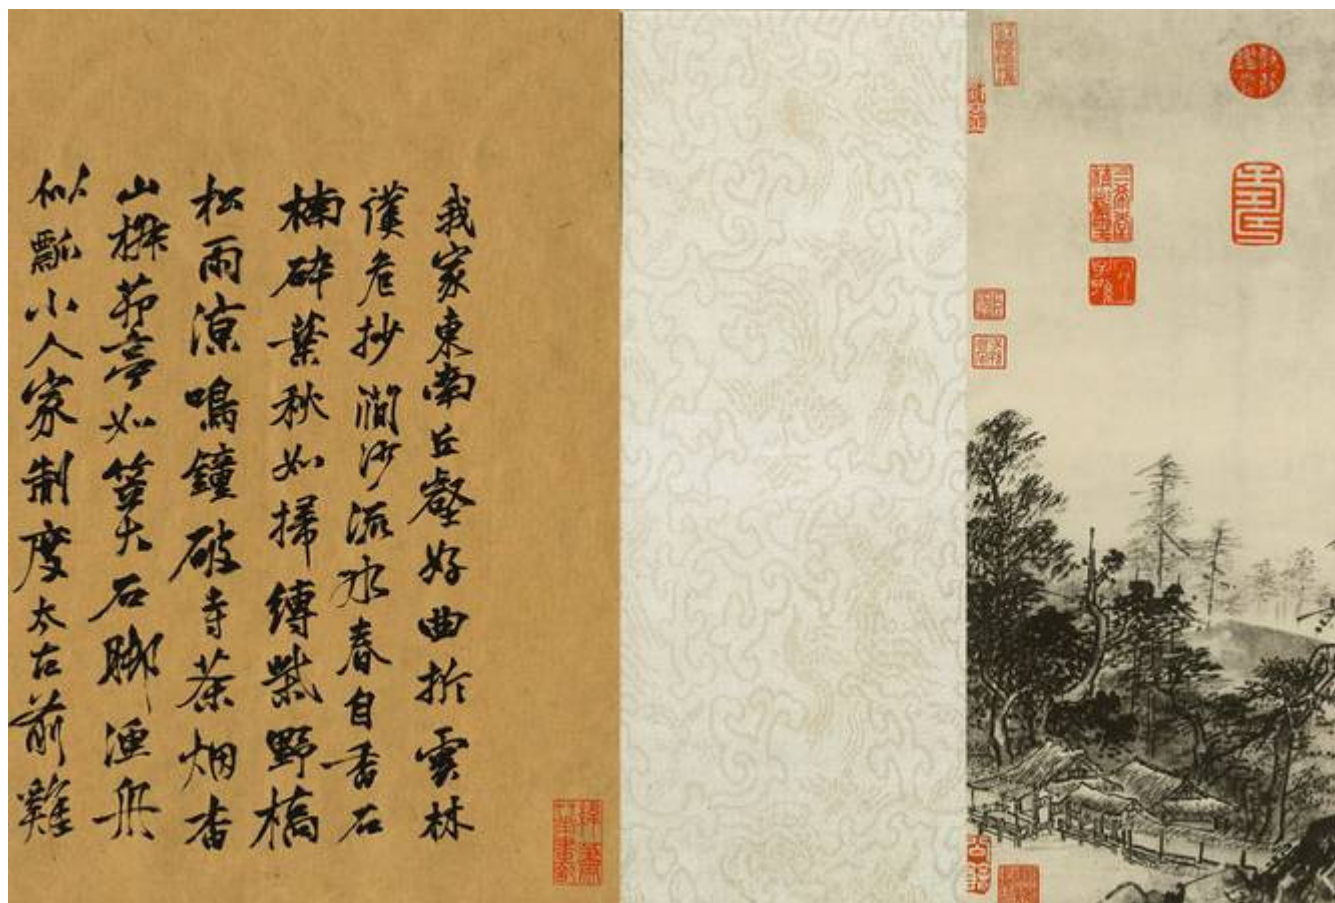 我家東南丘壑好曲折雲林
護危抄澗沙流水春自香石
楠碎葉秋如掃縛柴野橋
松雨涼鳴鐘破寺茶烟香
山椒茆亭如笠大石脚漁舟
似瓢小人家制度太古前雞